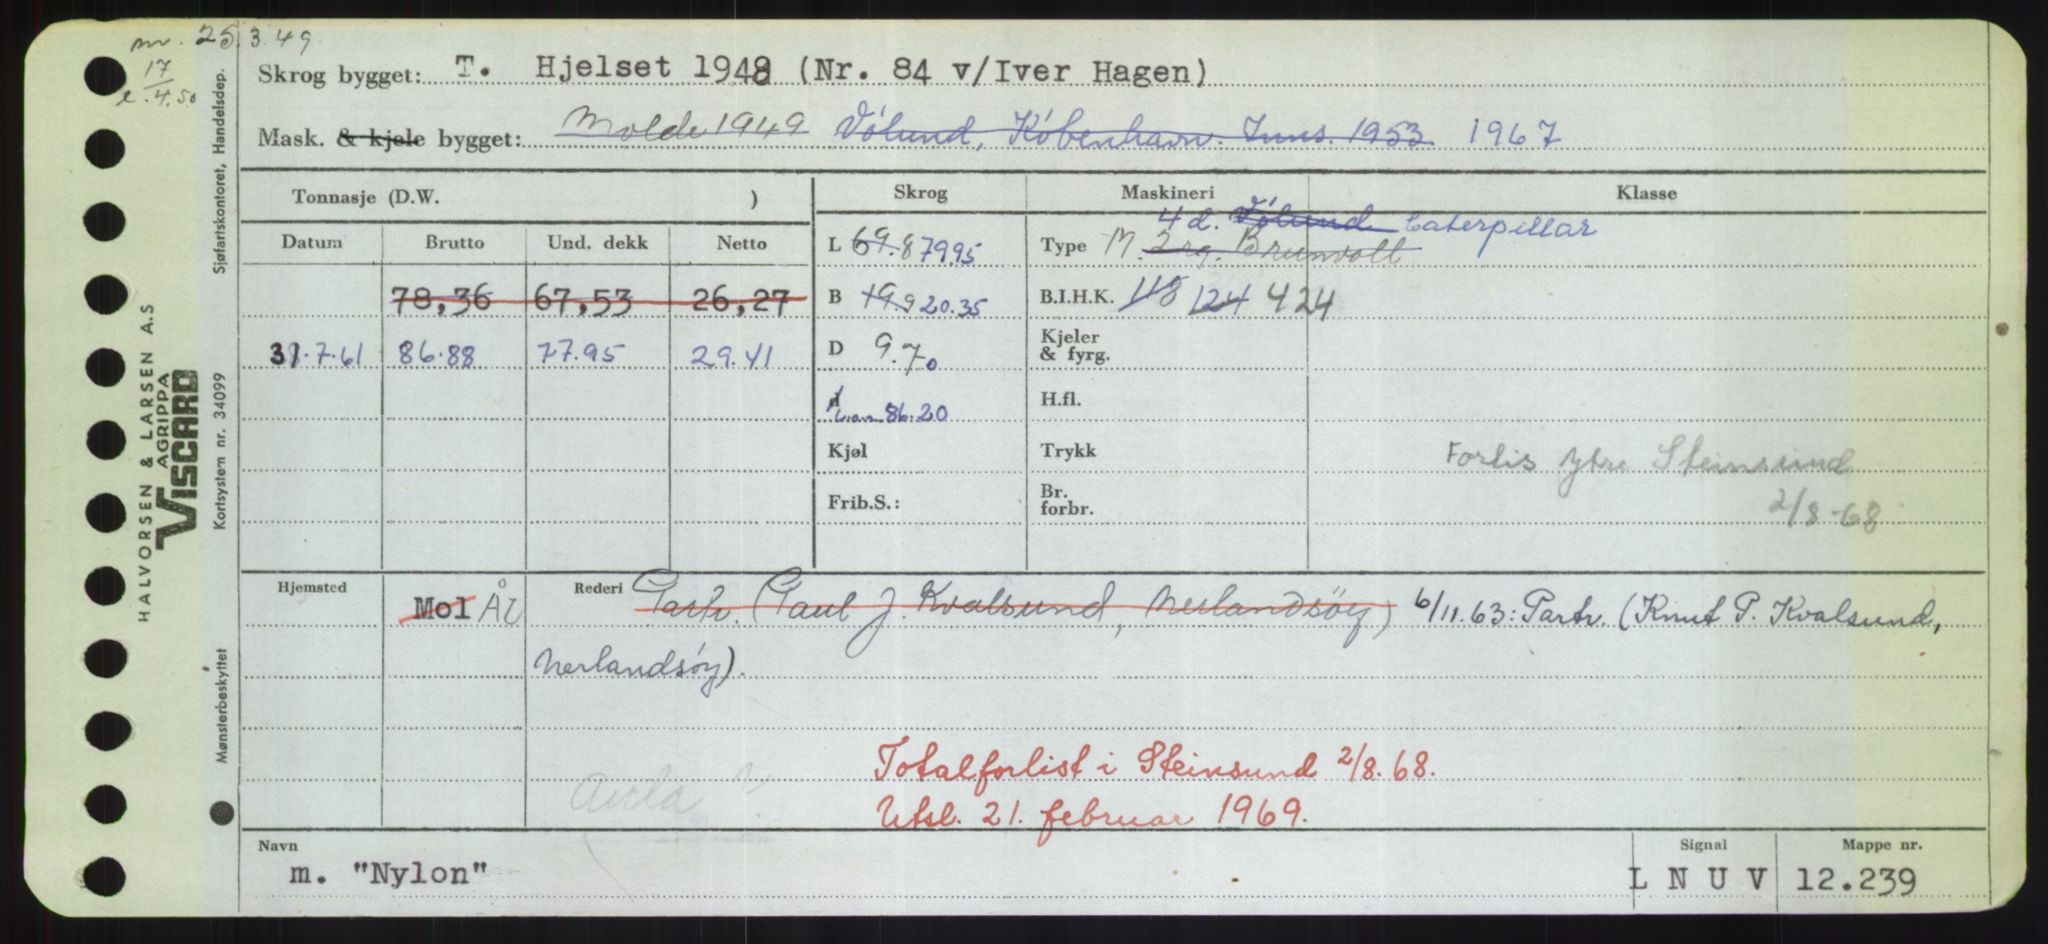 nr. 25.3.49
17
l.4.50
Skrog bygget: T. Hjelset 1948 (Nr. 84 v/Iver Hagen)
Mask. & kjele bygget: Molde 1949 Vølund, København. Inns. 1953 1967
Tonnasje (D.W. )
Skrog
Maskineri
Klasse
4 d. Vølund Caterpillar
Datum Brutto Und. dekk Netto
L 69.8 79.95
Type M. 2rg. Brunvoll
78,36 67,53 26,27
B 19.9 20.35
B.I.H.K. 118 124 424
31.7.61 86.88 77.95 29.41
D 9.70
Kjeler
& fyrg.
86.20
H.fl.
Kjøl
Trykk
Forlis ytre Steinsund
2/8-68
Frib.S.:
Br.
forbr.
Hjemsted Mol ÅL
Rederi Partr. (Paul J. Kvalsund, Nerlandsøy) 6/11.63: Partr. (Knut P. Kvalsund,
Nerlandsøy).
Totalforlist i Steinsund 2/8.68.
Aula
Utsl. 21. februar 1969.
Navn
m. "Nylon"
Signal
L N U V
Mappe nr.
12.239
Sjøfartskontoret, Handelsdep.
Kortsystem nr. 34099
Mønsterbeskyttet
HALVORSEN & LARSEN A.S
AGRIPPA
VISCARD